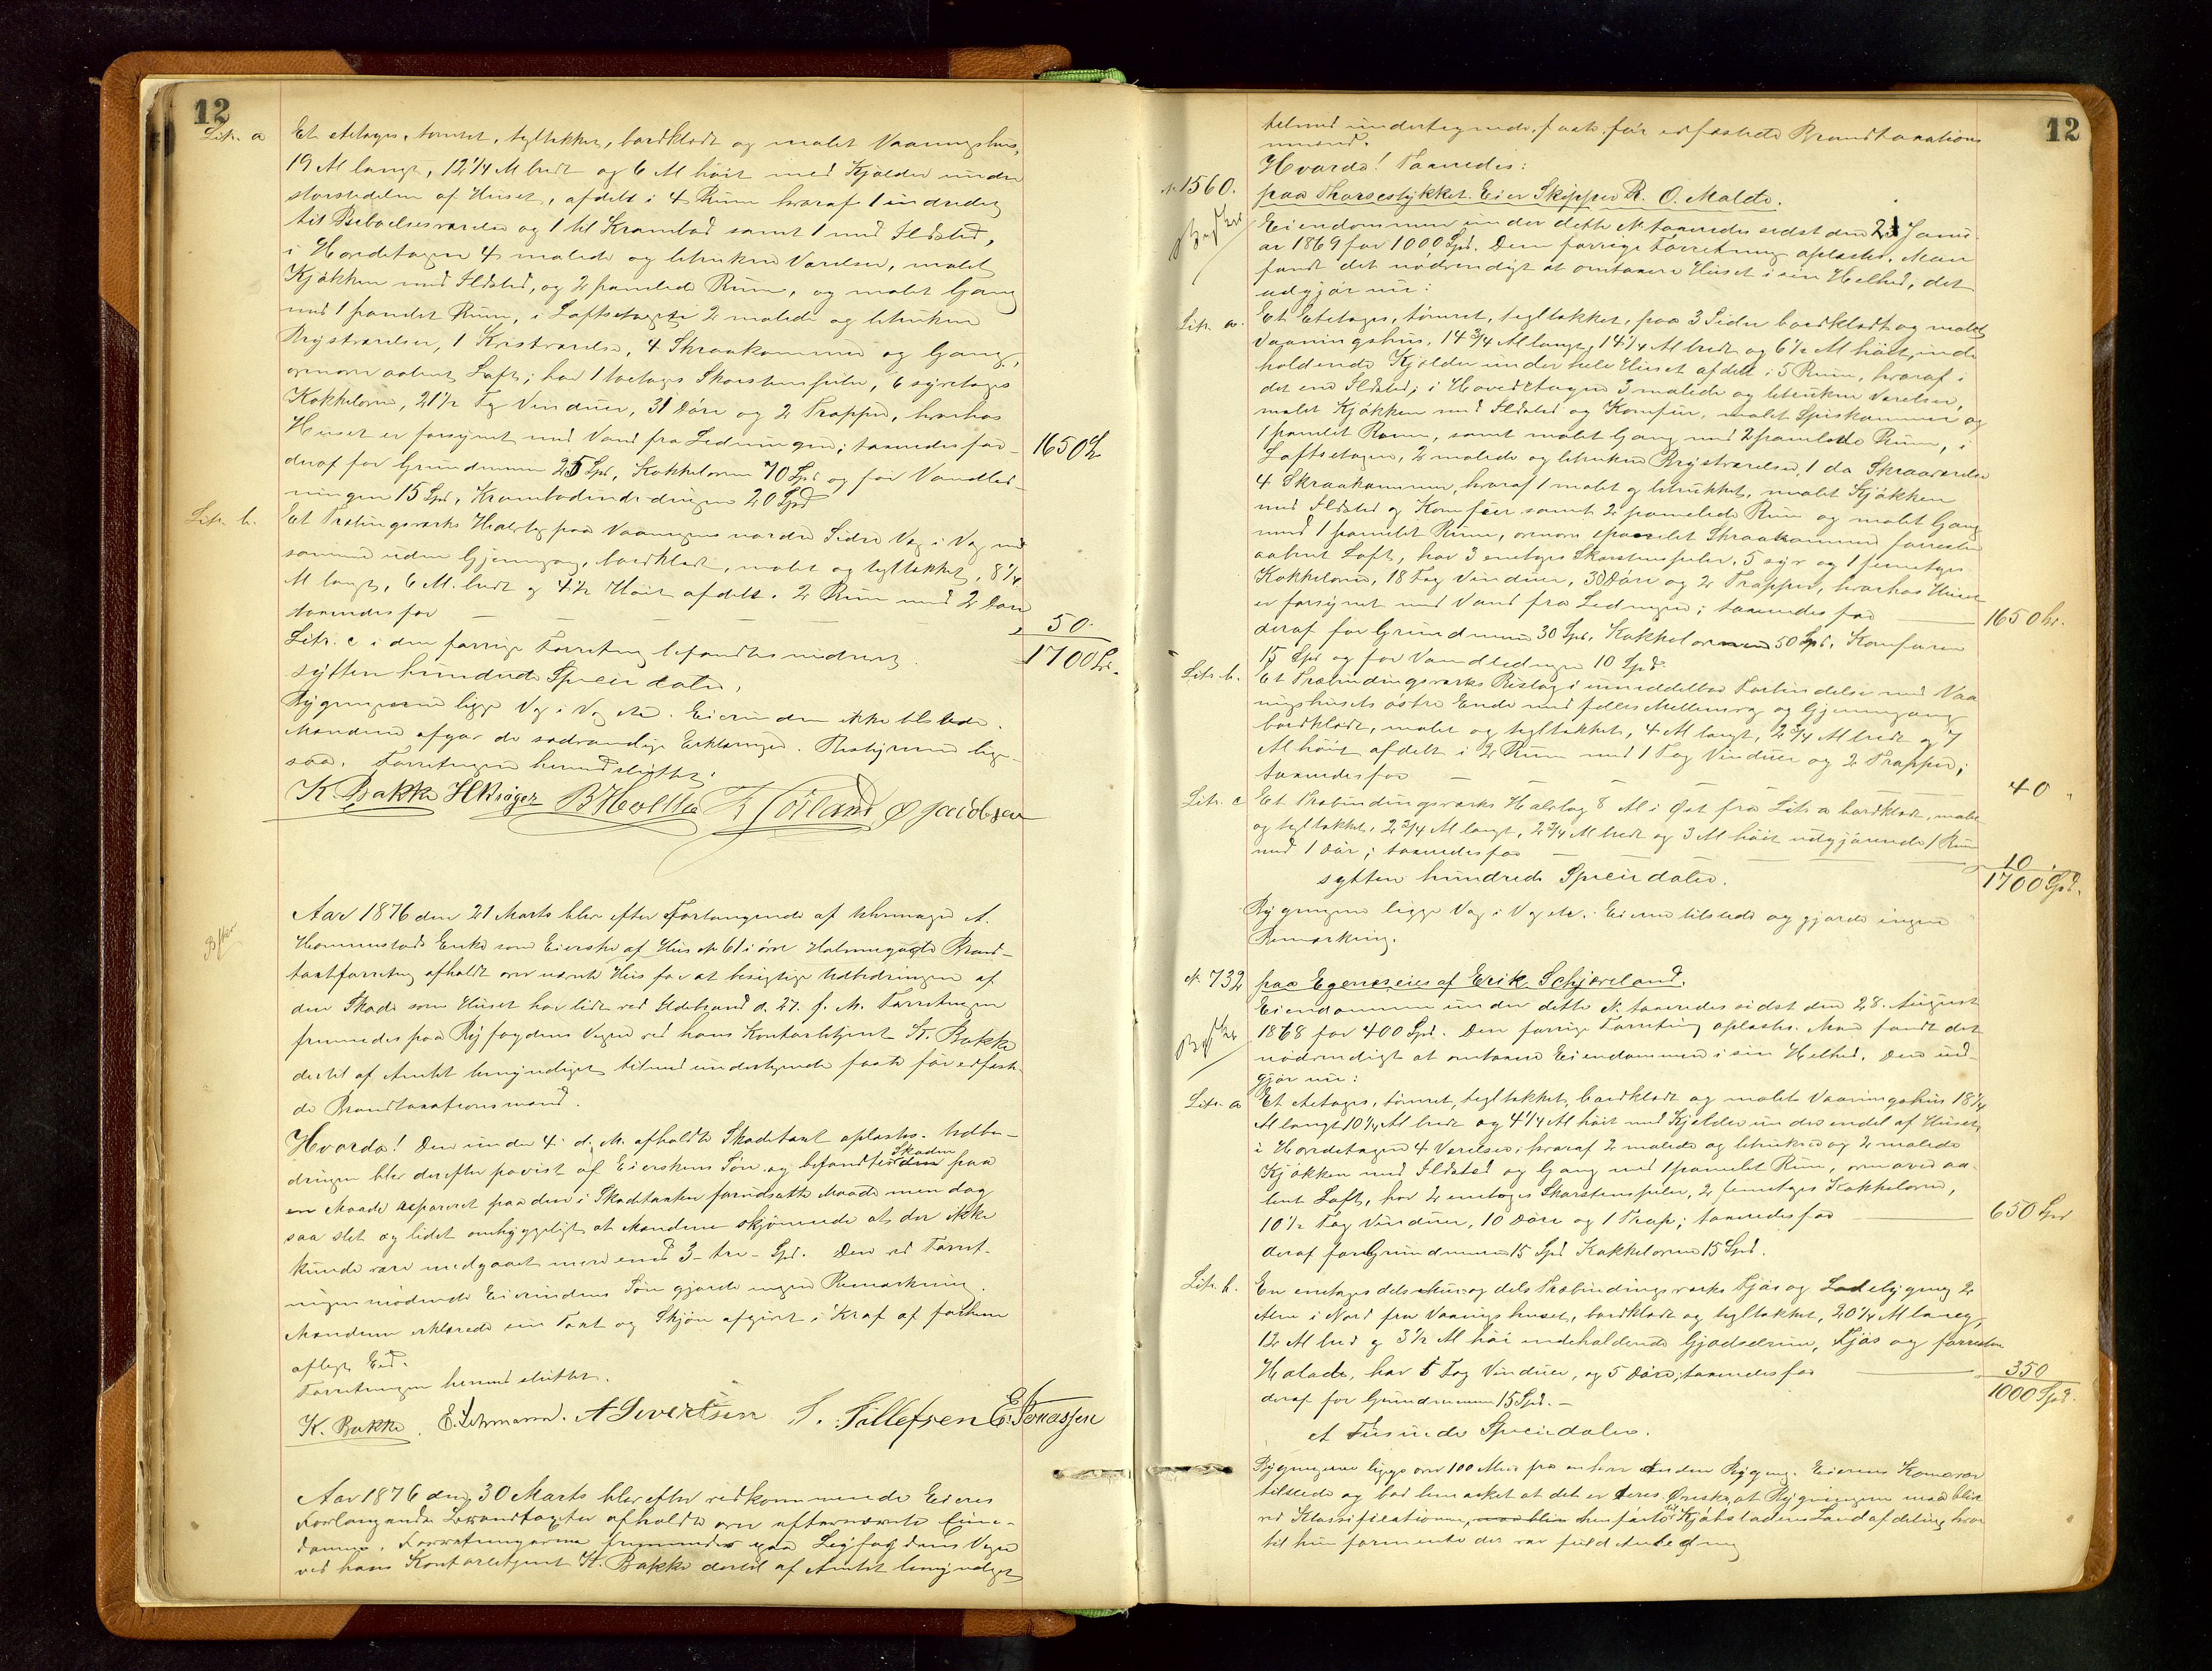 12
Litr. a Et etetages, tømret, tegltækket, bordklædt og malet Vaaningshus,
19 Al langt, 12 1/4 Al bredt og 6 Al høit med Kjælder under
størstedelen af Huset, afdelt i 4 Rum hvoraf 1 indredet
til Beboelsesværelse og 1 til Krambod samt 1 med Ildsted,
i Hovedetagen 4 malede og betrukne Værelser, malet
Kjøkken med Ildsted, og 2 panelede Rum, og malet Gang
med 1 panelet Rum, i Loftsetagen 2 malede og betrukne
Brystværelser, 1 Kvistværelse, 4 Skraakammere og Gang,
ovenover aabent Loft; har 1 toetages Skorstenspibe, 6 syvetages
Kakkelovne, 21 1/2 Fag Vinduer, 31 Døre og 2 Trapper, hvorhos
Huset er forsynet med Vand fra Ledningen; taxeredes for 1650 Sp
deraf for Grundmuren 25 Spd, Kakkelovne 70 Spd og for Vandled-
ningen 15 Spd, Krambodindredningen 20 Spd
Litr. b. Et Træbindingsværks Halvtag paa Vaaningens nordre Side Væg i Væg med
samme uden Gjennemgang, bordklædt, malet og tegltækket, 8 1/4
Al langt, 6 Al. bredt og 4 1/2 Høit afdelt i 2 Rum med 2 Døre
taxeredes for 50
Litr. c i den forrige Forretning befandtes nedrevet. 1700 Spd.
sytten hundrede Speciedaler.
Bygningerne ligge Væg i Væg etc. Eierinden ikke tilstede.
Mændene afgav de sædvanlige Erklæringer. Bestyreren lige-
saa. Forretningen hermed sluttet.
K. Bakke H Krøger B Hvoltta Sørland O Jacobsen
Aar 1876 den 21 Marts blev efter Forlangende af Uhrmager A.
Hommestads Enke som Eierske af Hus № 61 i øvre Holmegade Brand-
taxtforretning afholdt over nævnte Hus for at besigtige Udbedringen af
den Skade som Huset har lidt ved Ildebrand d. 27. f. M. Forretningen
fremmedes paa Byfogdens Vegne ved hans Kontorbetjent K. Bakke
dertil af Amtet bemyndiget tilmed undertegnede faste før edfæste-
de Brandtaxationsmænd.
Hvorda! Den under 4. d. M. afholdte Skadetaxt oplæstes. Udbe-
dringen blev derefter paavist af Eierskens Søn og befandtes Skaden paa
en Maade repareret paa den i Skadetaxten forudsatte Maade men dog
saa slet og lidet omhyggeligt at Mændene skjønnede at der ikke
kunde være medgaaet mere end 3- tre- Spd. Den ved Forret-
ningen mødende Eierindens Søn gjorde ingen Bemærkning
Mændene erklærede sin Taxt og Skjøn afgivet i Kraft af forhen
aflagt Eed.
Forretningen hermed sluttet.
K. Bakke. E. Lehmann. A Sivertsen T. Tillefsen E. Tomassen
Aar 1876 den 30 Marts blev efter vedkommende Eieres
Forlangende Brandtaxter afholdte over efternævnte Eien-
domme. Forretningerne fremmedes paa Byfogdens Vegne
ved hans Kontorbetjent K. Bakke dertil af Amtet bemyndiget
12
tilmed undertegnede faste før edfæstede Brandtaxations
mænd.
Hvorda! Taxeredes:
№ 1560. paa Skarsestykket. Eier Skipper R. O. Malde.
Eiendommen under dette № taxeredes sidst den 21 Janu-
ar 1869 for 1000 Spd. Den forrige Forretning oplæstes. Man
fandt det nødvendigt at omtaxere Huset i sin Helhed, det
udgjør nu:
Litr. a. Et Etetages, tømret, tegltækket, paa 3 Sider bordklædt og malet
Vaaningshus, 14 3/4 Al langt, 14 1/4 Al bredt og 6 1/2 Al høit, inde
holdende Kjælder under hele Huset afdelt i 5 Rum, hvoraf i
det ene Ildsted; i Hovedetagen 3 malede og betrukne Værelser,
malet Kjøkken med Ildsted og Komfur, malet Spiskammer og
1 panelet Rum, samt malet Gang med 2 panelede Rum, i
Loftsetagen, 2 malede og betrukne Brystværelser, 1 do Skraaværelse
4 Skraakammere, hvoraf 1 malet og betrukket, malet Kjøkken
med Ildsted og Komfur samt 2 panelede Rum og malet Gang
med 1 panelet Rum, ovenover panelet Skraakammer forresten
aabent Loft, har 3 enetages Skorstenspiber, 5 syv og 1 femetages
Kakkelovne, 18 Fag Vinduer, 30 Døre og 2 Trapper, hvorhos Huset
er forsynet med Vand fra Ledningen; taxeredes for 1650 Sp.
deraf for Grundmuren 30 Spd, Kakkelovnene 50 Spd, Komfuren
15 Spd og for Vandledningen 10 Spd.
Litr. b. Et Træbindingsværks Bislag i umiddelbar Forbindelse med Vaa
ningshusets østre Ende med fælles Mellemvæg og Gjennemgang
bordklædt, malet og tegltækket, 4 Al langt, 2 3/4 Al bredt og 7
Al høit afdelt i 2 Rum med 1 Fag Vinduer og 2 Trapper;
taxeredes for 40 "
Litr. c Et Træbindingsværks Halvtag 8 Al i Øst fra Litr. a bordklædt, malet
og tegltækket, 2 3/4 Al langt, 2 3/4 Al bredt og 3 Al høit udgjørende 1 Rum
med 1 Dør; taxeredes for 10
sytten hundrede Speciedaler. 1700 Spd.
Bygningerne ligge Væg i Væg etc. Eieren tilstede og gjorde ingen
Bemærkning.
№ 732 paa Egenæs eies af Erik Schjæveland.
Eiendommen under dette № taxeredes sidst den 28. August
1868 for 400 Spd. Den forrige Forretning oplæstes. Man fandt det
nødvendigt at omtaxere Eiendommen i sin Helhed. Den ud-
gjør nu:
Litr. a Et etetages, tømret, tegltækket, bordklædt og malet Vaaningshus 18 1/4
Al langt 10 1/4 Al bredt og 4 1/4 Al høit med Kjælder under endel af Huset,
i Hovedetagen 4 Værelser, hvoraf 2 malede og betrukne og 2 malede
Kjøkken med Ildsted og Gang med 1 panelet Rum, ovenover aa-
bent Loft, har 2 enetages Skorstenspiber, 2 femetages Kakkelovne,
10 1/2 Fag Vinduer, 10 Døre og 1 Trap; taxeredes for 650 Spd
deraf for Grundmuren 15 Spd Kakkelovne 15 Spd.
Litr. b. En enetages dels mur og dels Træbindingsværks Fjøs og Ladebygning 2
Alen i Nord fra Vaaningshuset, bordklædt og tegltækket, 20 1/4 Al lang,
12 Al bred og 3 1/2 Al høi indeholdende Gjødselrum, Fjøs og forresten
Hølade, har 5 Fag Vinduer, og 5 Døre, taxeredes for 350
deraf for Grundmuren 15 Spd. - 1000 Spd.
et Tusinde Speciedaler.
Bygningerne ligge over 100 Alen fra enhver Anden Bygning. Eierens Kone var
tilstede og bad bemærket at det er deres Ønske, at Bygningerne maa blive
ved Klassificationen henført til Kjøbstadens Landafdeling, hvor
til hun formente der var fuld Anledning